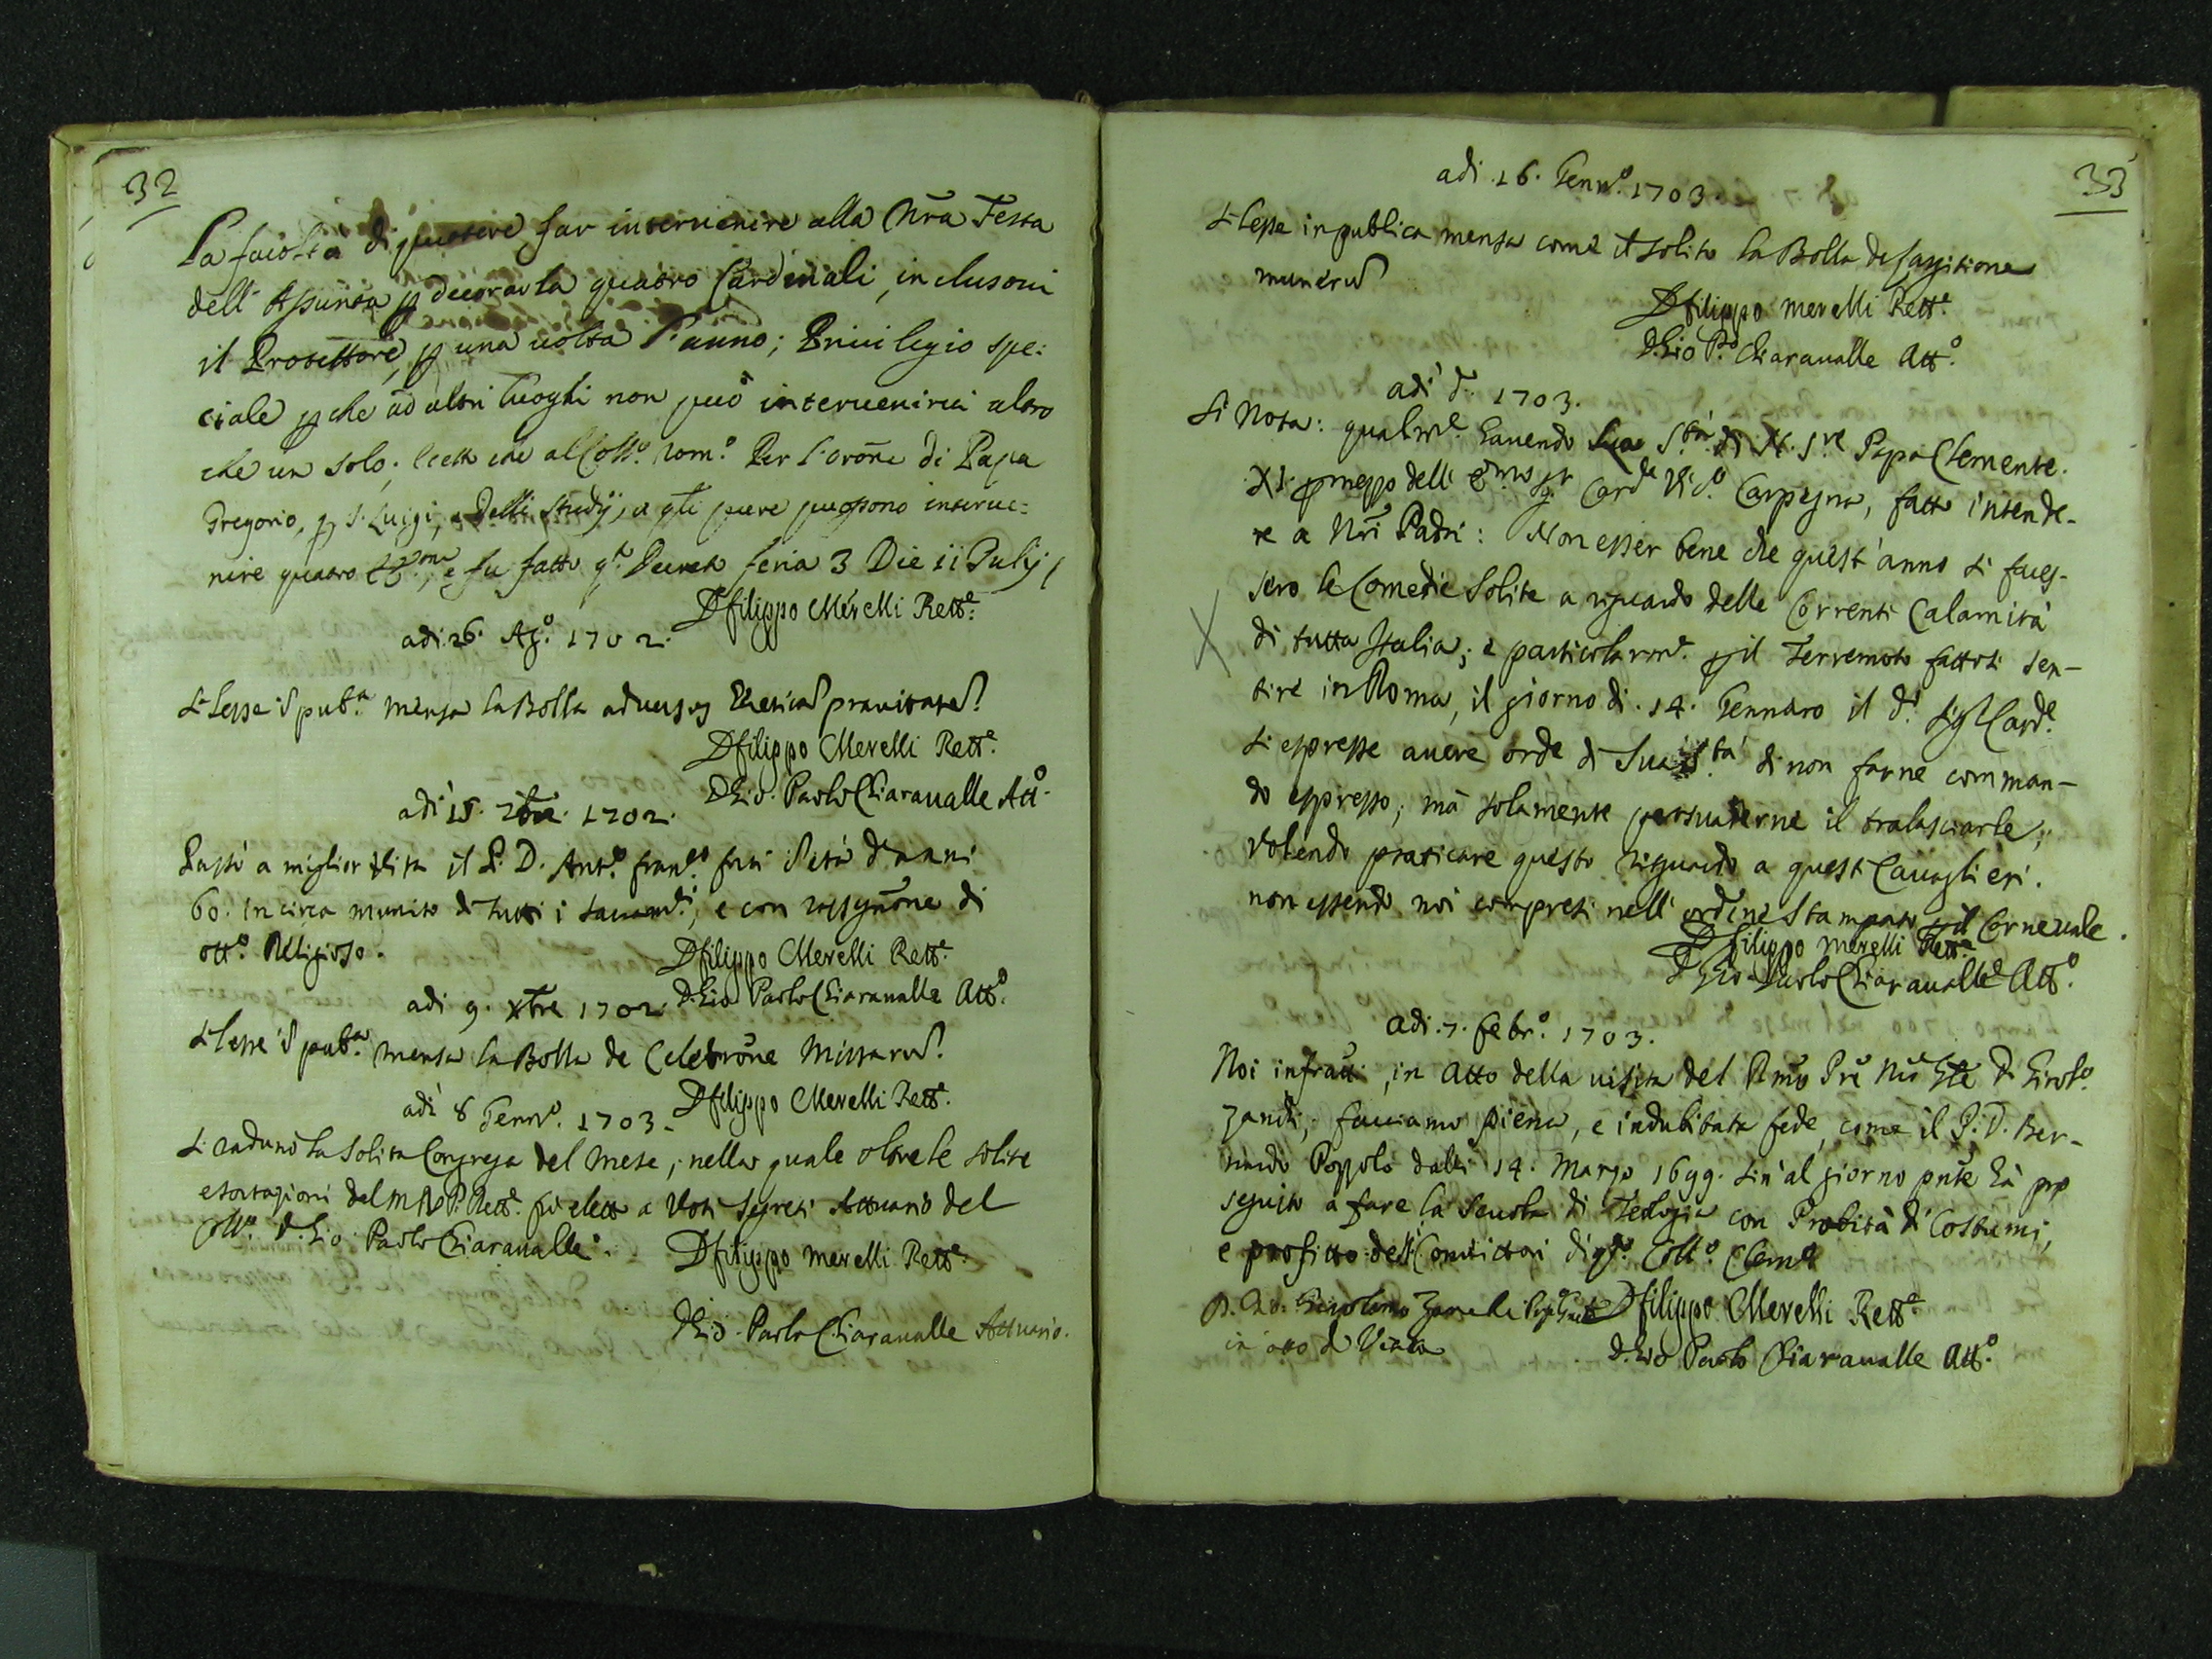 32
La facoltà di puotere far interuenire alla Nrã Festa
dell'Assunta p decorarla quatro Cardinali, inclusoui
il Protettore, p una uolta l'anno; Priuilegio spe:
ciale p che ad altri luoghi non può interuenirui altro
che un solo; che al Coll.o Rom.o Per l'orõne di Papa
Gregorio, p S. Luigi, e delli Studij, a q̃li pure puossono interue:
nire quatro e fu fatto q.o Decreto feria 3 Die 11 Julij
D filippo Merelli Rett.e
adi 26. Ag.o 1702.
Si lesse ĩ pub.a mensa la Bolla aduersus Ereticã prauitatẽ.
D filippo Merelli Rett.e
D Gio. Paolo Chiaraualle Att.o
adi 15. 1702.
Passò a miglior Vita il P. D. Ant.o Fran.co ĩ età d'anni
60. in circa munito di tutti i Sacram.ti, e con rassegñone di
ott.o Religioso.
D filippo Merelli Rett.e
adi 9. Xbre 1702.
D. Gio. Paolo Chiaraualle Att.o
Si lesse ĩ pub.a mensa la Bolla de Celebrõne Missarũ.
D filippo Merelli Rett.e
adi 8 Genn.o 1703.
Si radunò la solita Congrega del mese, nella quale oltre le solite
esortazioni del M R P. Rett.e fu eletto a Voti segreti Attuario del
Coll.o D. Gio. Paolo Chiaraualle.
D filippo Merelli Rett.e
D Gio. Paolo Chiaraualle Attuario.
33
adi 16. Genn.o 1703.
Si lesse in publica mensa come il solito la Bolla de largitione
munerũ
D filippo Merelli Rett.e
D. Gio P.o Chiaraualle Att.o
adi d.o 1703.
Si Nota: qualm.e hauendo Sua S.tà di N. S.re Papa Clemente
XI. p mezzo dell' Em.mo Sig.r Card.le Vic.o Carpegna, fatto intende-
re a Nrĩ Padri: Non esser bene che quest'anno si faces-
sero le Comedie solite a riguardo delle Correnti Calamità
di tutta Italia; e particolarm.e p il Terremoto fattosi sen-
tire in Roma, il giorno di 14. Gennaro il d.o Sig.r Card.e
si espresse auere ordẽ di Sua S.tà di non farne comman-
do espresso; mà solamente persuaderne il tralasciarle;
Volendo praticare questo riguardo a questi Cauaglieri.
non essendo noi compresi nell'ordine stampato p il Carneuale.
D filippo Merelli Rett.e
D Gio. Paolo Chiaraualle Att.o
adi 7. Febr.o 1703.
Noi infratti, in Atto della uisita del Rm̃o Prẽ Nrõ Gle D. Girol.o
Zanchi, facciamo piena, e indubitata fede, come il P. D. Ber-
nardo Pozzolo dalli 14. Marzo 1699. sin'al giorno pñte hà prõ
seguito a fare la Scuola di Teologia con Probità di Costumi,
e profitto delli Conuittori di q.o Coll.o Clem.o
D. Girolamo Zanchi D filippo Merelli Rett.e
in atto di Visita
D. Gio Paolo Chiaraualle Att.o